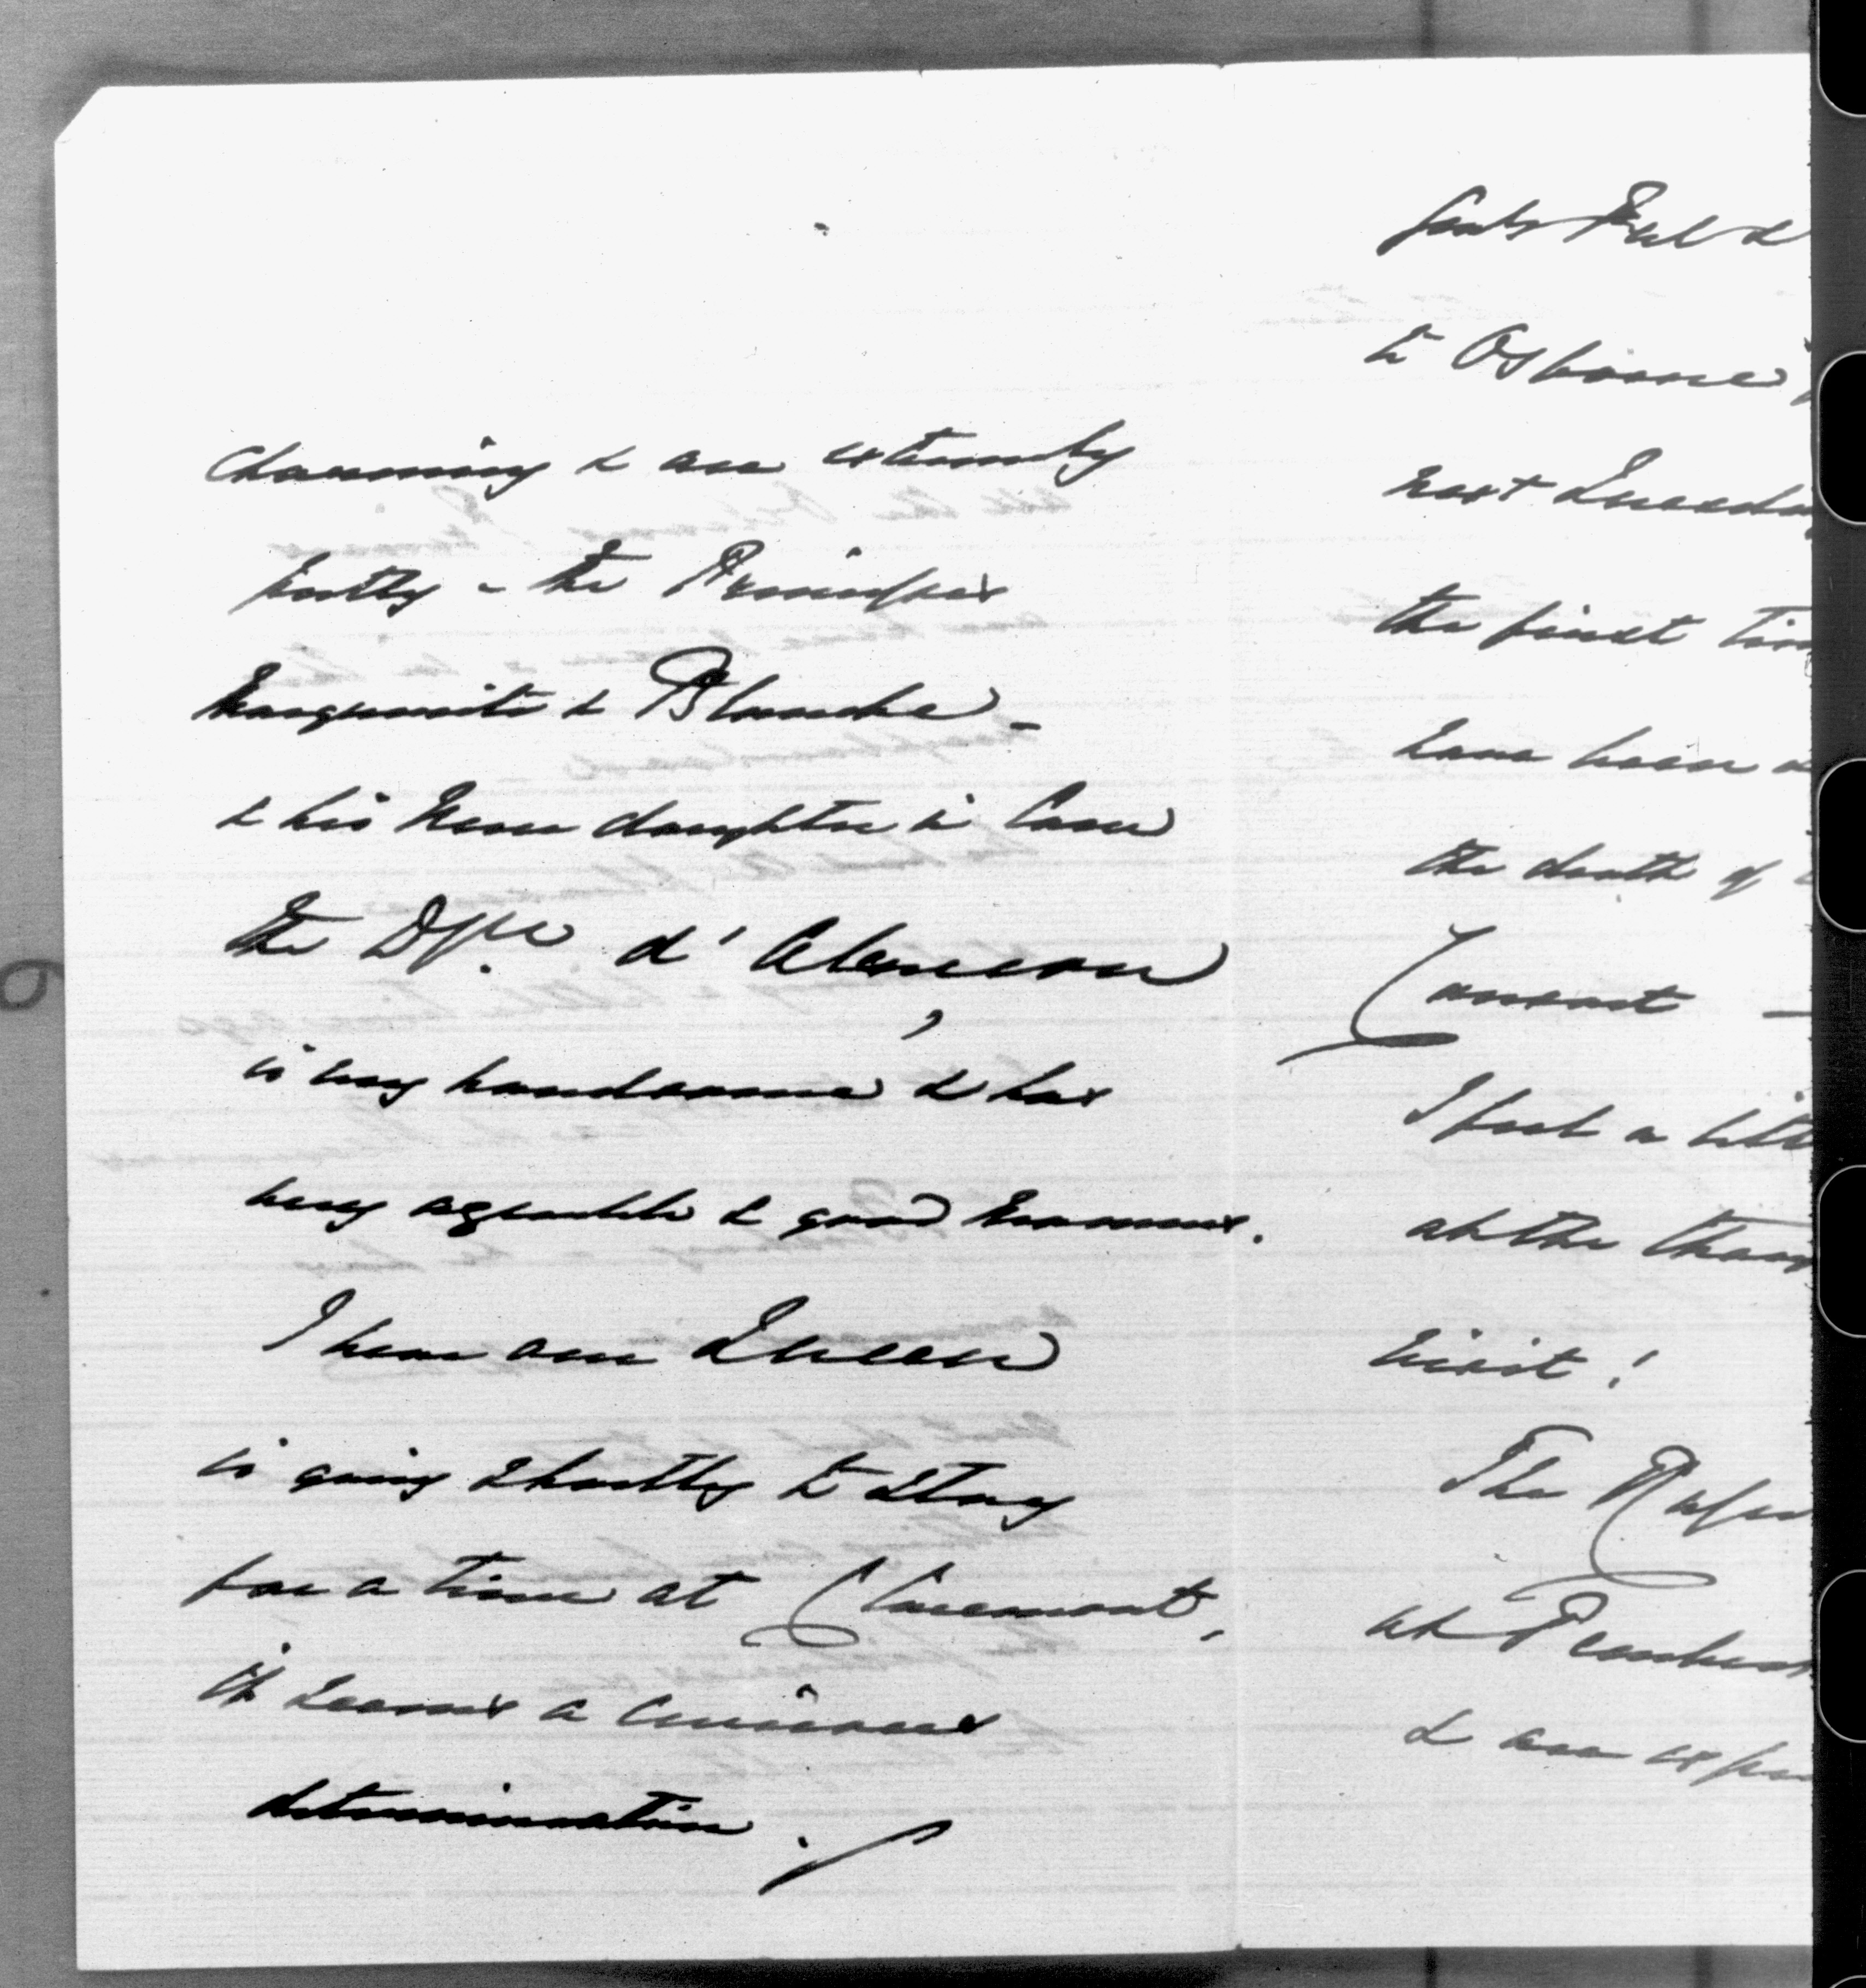 charming & are extremely
pretty – the Princesses
Marguerite & Blanche –
& his new daughter in law
the Dss. d'Alençon
is very handsome & has
very agreeable & good manners.
I hear our Queen
is going shortly to stay
for a time at Claremont,
it seems a curious
determination.
to Osborne
next
the first
have been
the death of
Consort –
I feel a
at the
visit!
The
at
& are